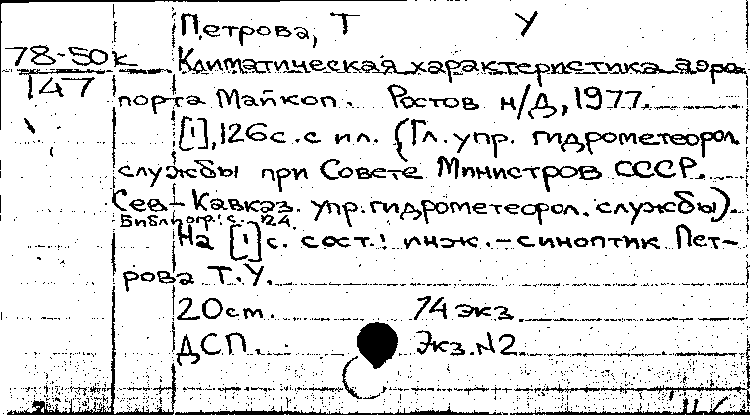 Петрова, Т У
78-50к Климатическая характеристика аэро
147
порта Майкоп. Ростов н/Д, 1977.
[1], 126с. с ил. (Гл. упр. гидрометеорол.
службы при Совете Министров СССР.
Сев-Кавказ. упр. гидрометеорол. службы).
Библиогр.: с. 124
На [1] с. сост.: инж.-синоптик Пет-
рова Т.У.
20 см. 74 экз.
ДСП. Экз. N2